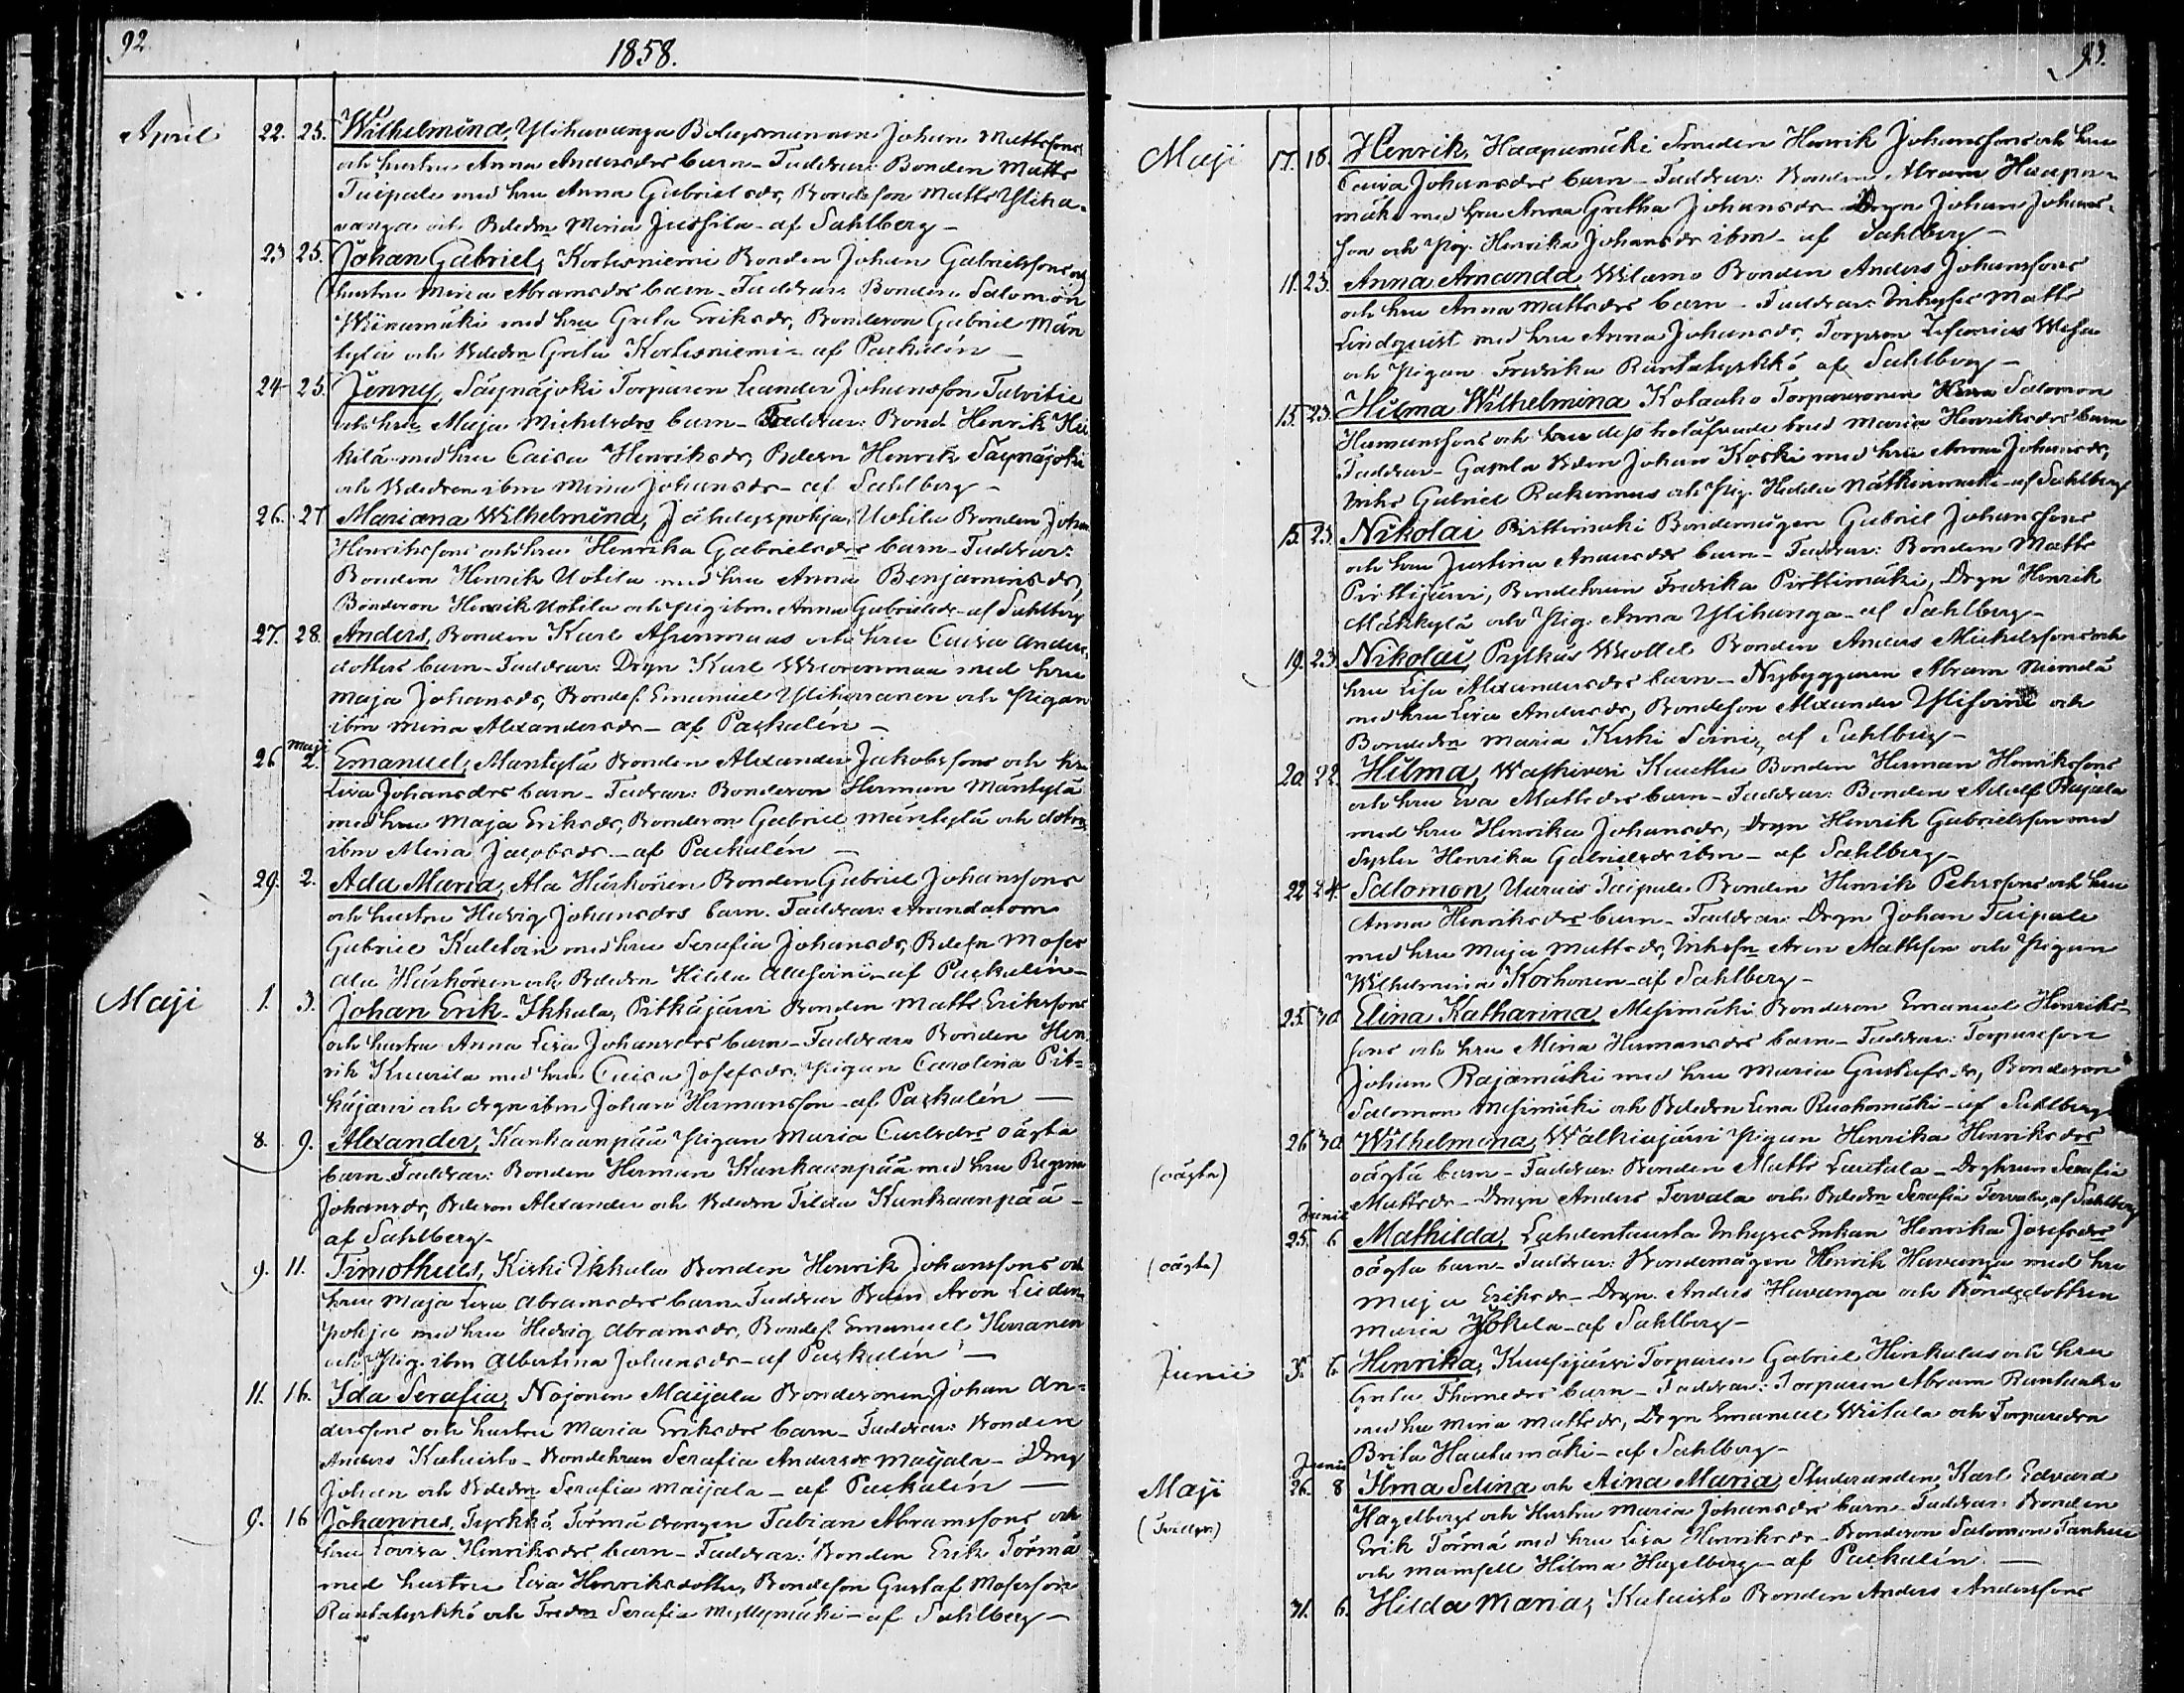 92.
1858.
April 22. 25. Wilhelmina, Ylihavanga Bolagsmannen Johan Mattssons
och hustru Anna Andersdrs barn - Faddrar: Bonden Matts
Taipale med hru Anna Gabrielsdr, Bondeson Matts Yliha-
vanga och Bdedrn Maria Jussila - af Sahlberg -
23 25. Johan Gabriel, Kortesniemi Bonden Johan Gabrielssons och
hustru Maria Abramsdrs barn - Faddrar: Bonden Salomon
Wiinamäki med hru Greta Eriksdr, Bondeson Gabriel Män
tylä och Bdedrn Greta Kortesniemi - af Paskalén -
24 25. Jenny, Säynäjoki Torparen Leander Johansson Talvitie
och hru Maja Michelsdrs barn - Faddrar: Bond. Henrik Hei
kilä med hru Caisa Henriksdr, Bdesn Henrik Säynäjoki
och Bdedren ibm Mina Johansdr - af Sahlberg -
26. 27 Mariana Wilhelmina, Jähdyspohja, Uotila Bonden Johan
Henrikssons och hru Henrika Gabrielsdrs barn - Faddrar:
Bonden Henrik Uotila med hru Anna Benjaminsdr,
Bondeson Henrik Uotila och Pig ibm. Anna Gabrielsdr - af Sahlberg
27. 28. Anders, Bonden Karl Ahrenmaas och hru Caisa Anders
dotters barn - Faddrar: Drgn Karl Wuorenmaa med hru
Maja Johansdr, Bondes. Emanuel Yliherranen och Pigan
ibm Mina Alexandersdr - af Paskalén -
26 Maji 2. Emanuel, Mäntylä Bonden Alexander Jakobssons och hru
Lisa Johansdrs barn - Fadrar: Bondeson Herman Mäntylä
med hru Maja Eriksdr, Bondeson Gabriel Mäntylä och dotrn
ibm Mina Jacobsdr - af Paskalén -
29. 2. Ada Maria, Ala Häsköinen Bonden Gabriel Johanssons
och hustru Hedvig Johansdrs barn. Faddrar: Arrendatorn
Gabriel Kaletoin med hru Serafia Johansdr, Bdesn Moses
Ala Häsköinen och Bdedrn Hilda Alasoini - af Paskalén -
Maji 1. 3. Johan Erik - Ikkala, Pitkäjärvi Bonden Matts Erikssons
och hustru Anna Lisa Johansdrs barn - Faddrar Bonden Hen
rik Knuurila med hru Caisa Josefsdr. Pigan Carolina Pit-
käjärvi och drgn ibm Johan Hermansson - af Paskalén -
8. 9. Alexander, Kankaanpää Pigan Maria Carlsdrs oägta
barn. Faddrar: Bonden Herman Kankaanpää med hru Regina
Johansdr, Bdeson Alexander och Bdedrn Tilda Kankaanpää -
af Sahlberg -
9. 11. Timotheus, Keski Ikkala Bonden Henrik Johanssons och
hru Maja Lisa Abramsdrs barn. Faddrar Bden Aron Leiden
pohja med hru Hedvig Abramsdr, Bondes. Emanuel Herranen
och Pig. ibm Albertina Johansdr - af Paskalén -
11. 16. Ida Serafia, Nojonen Maijala Bondesonen Johan An-
derssons och hustru Maria Eriksdrs barn - Faddrar: Bonden
Anders Katuisto - Bondehrun Serafia Andersdr Maijala - Drng
Johan och Bdedrn Serafia Maijala - af Paskalén -
9. 16 Johannes, Tyrkkö, Törmä drengen Fabian Abramssons och
hru Lovisa Henriksdrs barn - Faddrar: Bonden Erik Törmä
med hustru Lisa Henriksdotter, Bondeson Gustaf Mosesson
Rantatyrkkö och Tredrn Serafia Myllymäki - af Sahlberg -
93.
Maji 17. 18. Henrik, Haapamäki Smeden Henrik Johanssons och hru
Caisa Johansdrs barn - Faddrar: Bonden Abram Haapa-
mäki med hru Anna Gretha Johansdr - Drgn Johan Johans-
son och Pig. Henrika Johansdr ibm - af Sahlberg -
11. 23. Anna Amanda, Wilamo Bonden Anders Johanssons
och hru Anna Mattsdrs barn - Faddrar: Inhyses Matts
Lindquist med hru Anna Johansdr, Torpson Zefanias Wesa
och Pigan Fredrika Rantatyrkkö af Sahlberg -
15. 23. Hilma Wilhelmina Kolauho Torparesonen Salomon
Hermanssons och dess trolofvade brud Maria Henriksdrs barn
Faddrar - Gamla Bden Johan Koski med hru Anna Johansdr,
Inhs Gabriel Rakennus och Pig. Hedda Nätkinmäki - af Sahlberg
15. 23. Nikolai Pirttimäki Bondemågen Gabriel Johanssons
och hru Justina Amansdrs barn - Faddrar: Bonden Matts
Pirttijärvi, Bondehrun Fredrika Pirttimäki, Drgn Henrik
Mäkkylä och Pig. Anna Ylihanga - af Sahlberg -
19. 23. Nikolai, Pylkäs Wuolle Bonden Anders Michelssons och
hru Lisa Alexandersdrs barn - Nybyggaren Abram Niemelä
med hru Lisa Andersdr, Bondeson Alexander Ylisoini och
Bondedrn Maria Keski Soini, af Sahlberg -
20 22. Hilma, Wahkiveri Kauttu Bonden Herman Henrikssons
och hru Eva Mattsdrs barn - Faddrar: Bonden Adolf Rajala
med hru Henrika Johansdr, Drgn Henrik Gabrielsson med
Syster Henrika Gabrielsdr ibm - af Sahlberg -
22 24. Salomon, Uurais Taipale Bonden Henrik Petersson och hru
Anna Henriksdrs barn - Faddrar: Drgn Johan Taipale
med hru Maja Mattsdr, Inhsn Aron Mattsson och Pigan
Wilhelmina Korhonen - af Sahlberg -
25. 30 Elina Katharina, Mesimäki Bondeson Emanuel Henriks-
sons och hru Mina Hermansdrs barn - Faddrar: Torpareson
Johan Rajamäki med hru Maria Gustafsdr, Bondeson
Salomon Mesimäki och Bdedrn Lena Ruohomäki - af Sahlberg
(oägta) 26 30 Wilhelmina, Wälkiajärvi Pigan Henrika Henriksdrs
oägta barn - Faddrar: Bonden Matts Lautala - Dryhrun Serafia
Mattsdr - Drngn Anders Tervala och Bdedrn Serafia Tervala, af Sahlberg
(oägta) 25. Junii 6 Mathilda, Lahdentausta Inhyses Enkan Henrika Josefsdrs
oägta barn - Faddrar: Bondemågen Henrik Havanga med hru
Maja Eriksdr - Drgn. Anders Havanga och Bondedottren
Maria Jokela - af Sahlberg -
Junii 3. 6. Henrika, Kuusijärvi Torparen Gabriel Hinkulas och hru
Greta Thomedrs barn - Faddrar: Torparen Abram Rantaaho
med hru Mina Mattsdr, Drgn Emanuel Wiitala och Torparedrn
Brita Hautamäki - af Sahlberg -
Maji (tvillgr.) 26. Junii 8 Ilma Selina och Aina Maria, Studeranden Karl Edvard
Hagelbergs och Hustru Maria Johansdrs barn - Faddrar: Bonden
Erik Törmä med hru Lisa Henriksdr - Bondeson Salomon Tanhua
och mamsell Hilma Hagelberg - af Paskalén -
31. 6. Hilda Maria, Katuisto Bonden Anders Anderssons